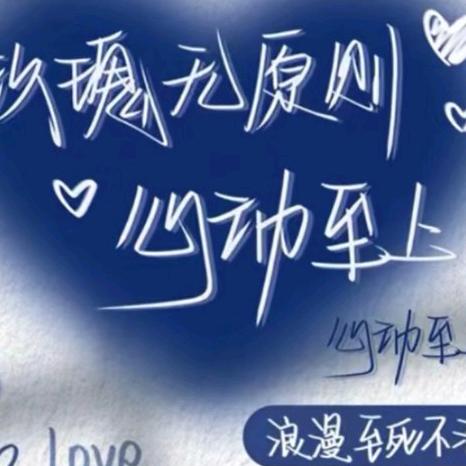 玫瑰无原则
心动至上
心动至
浪漫至死不
Love